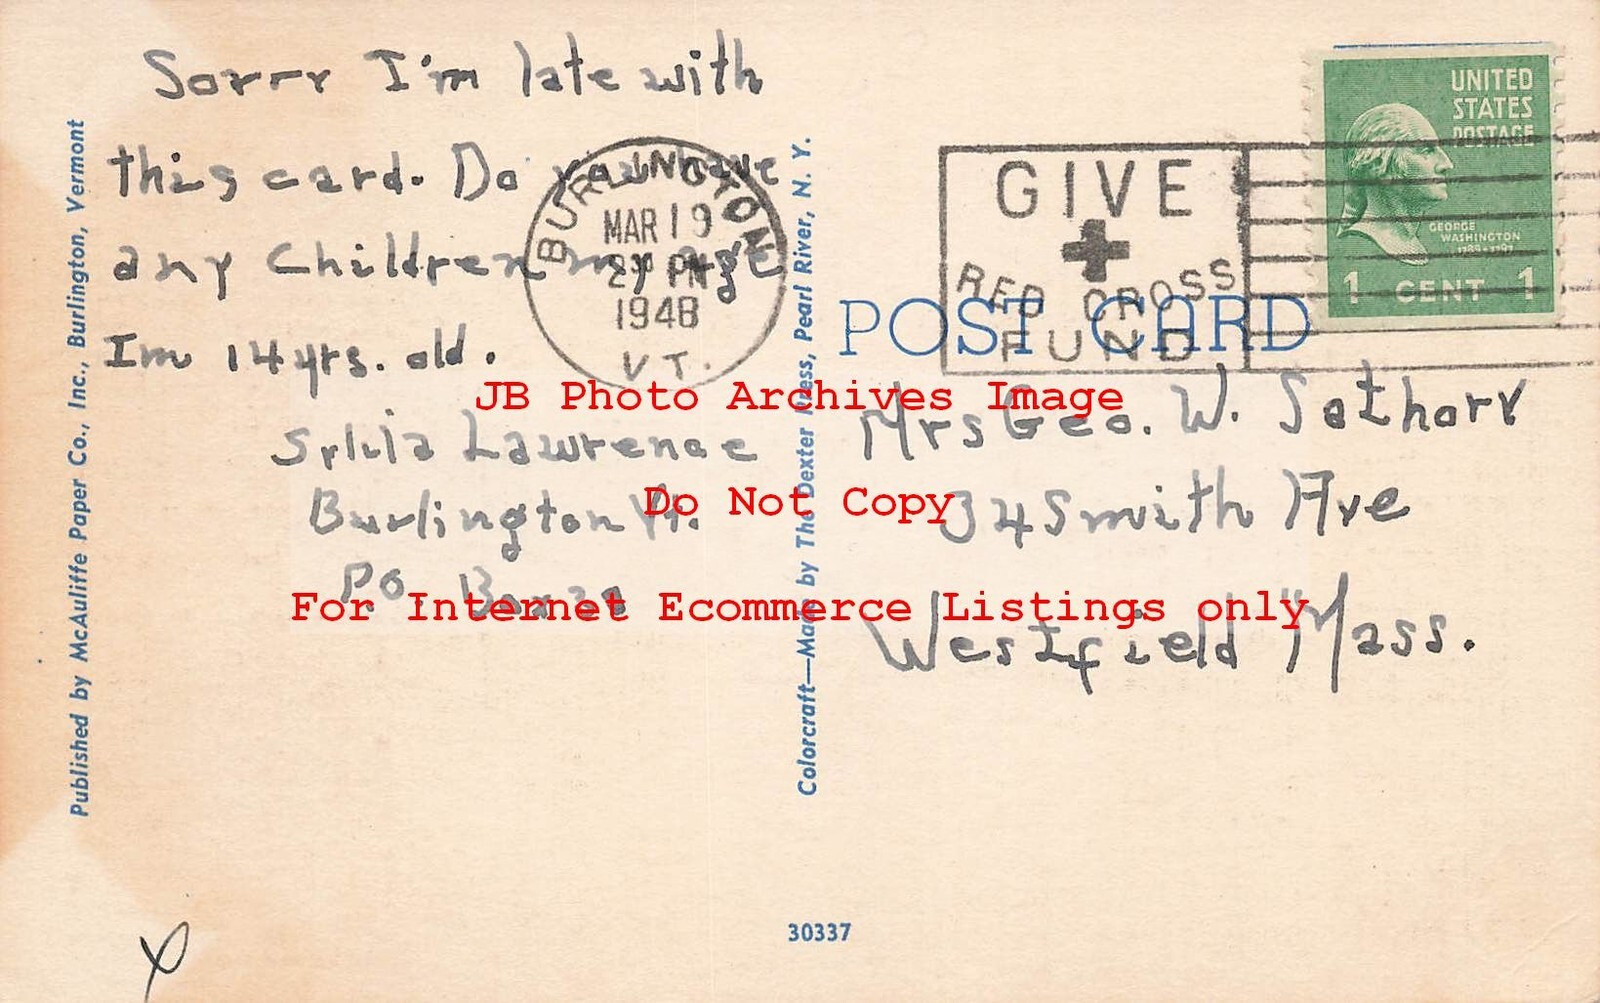 Sorry I'm late with
this card. Do you have
any Children my age
Im 14 yrs. old.
Sylvia Lawrence
Burlington Vt.
P.O. Box
BURLINGTON
MAR 19
2 30 PM
1948
VT.
GIVE
RED CROSS
FUND
UNITED
STATES
POSTAGE
GEORGE
WASHINGTON
1789-1797
1 CENT 1
POST CARD
Mrs Geo. W. Sathory
34 Smith Ave
Westfield Mass.
Published by McAuliffe Paper Co., Inc., Burlington, Vermont
Colorcraft—Made by The Dexter Press, Pearl River, N. Y.
JB Photo Archives Image
Do Not Copy
For Internet Ecommerce Listings only
30337